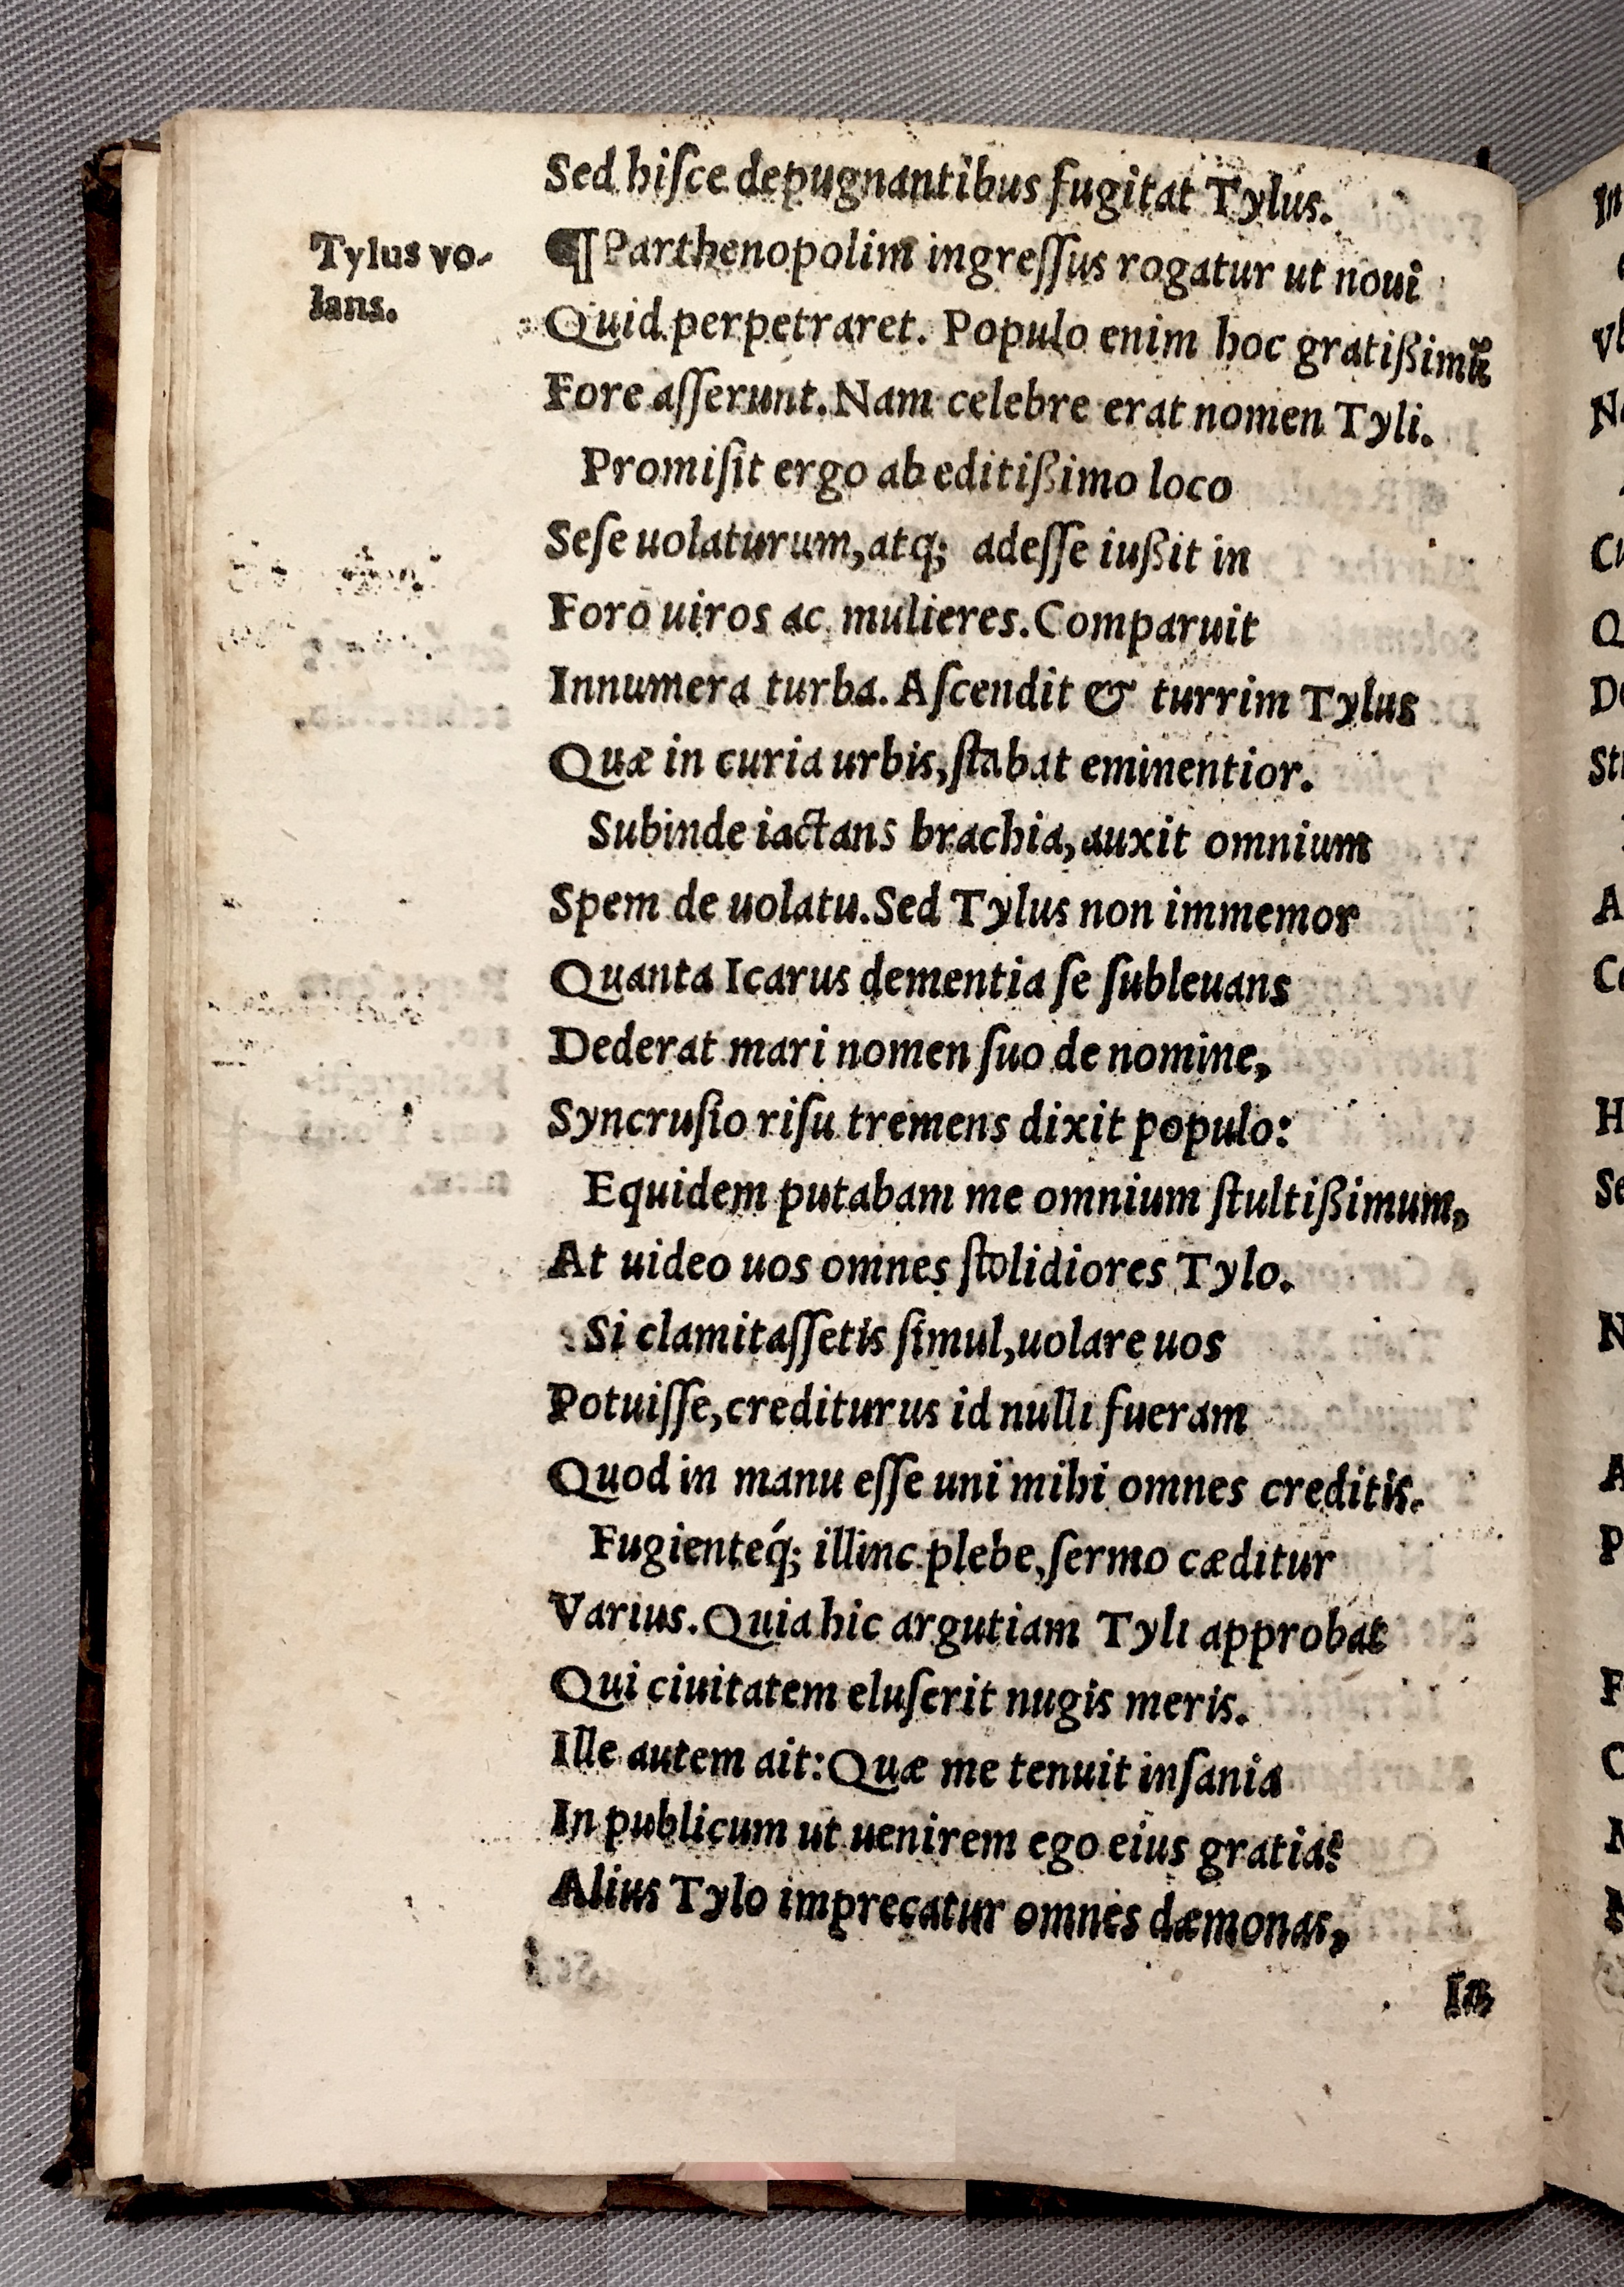 Sed hiſce depugnantibus fugitat Tylus.
Tylus vo-
lans.
¶Parthenopolim ingreſſus rogatur ut noui
Quid perpetraret. Populo enim hoc gratißimũ
Fore aſſerunt. Nam celebre erat nomen Tyli.
Promiſit ergo ab editißimo loco
Seſe uolaturum, atq; adeſſe iußit in
Foro uiros ac mulieres. Comparuit
Innumera turba. Aſcendit & turrim Tylus
Quæ in curia urbis, ſtabat eminentior.
Subinde iactans brachia, auxit omnium
Spem de uolatu. Sed Tylus non immemor
Quanta Icarus dementia ſe ſubleuans
Dederat mari nomen ſuo de nomine,
Syncruſio riſu tremens dixit populo:
Equidem putabam me omnium ſtultißimum,
At uideo uos omnes ſtolidiores Tylo.
Si clamitaſſetis ſimul, uolare uos
Potuiſſe, crediturus id nulli fueram
Quod in manu eſſe uni mihi omnes creditis.
Fugienteq́; illinc plebe, ſermo cæditur
Varius. Quia hic argutiam Tyli approbat
Qui ciuitatem eluſerit nugis meris.
Ille autem ait: Quæ me tenuit inſania
In publicum ut uenirem ego eius gratia?
Alius Tylo imprecatur omnes dæmonas,